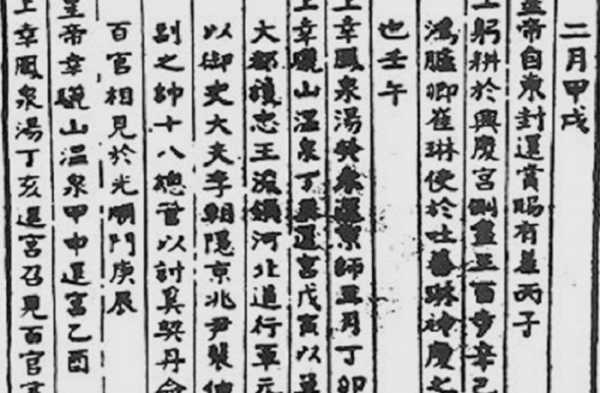 二月甲戌
帝自東封還賞賜有差丙子
上躬耕於興慶宮側盡三百步辛已
鴻臚卿崔琳使於吐蕃琳神慶之
也壬午
上幸鳳泉湯癸未還京師 月丁卯
上幸驪山溫泉丁 還宮戊寅以單
大都護忠王浚領河北道行軍元
以御史大夫李朝隱京兆尹裴伷
副之帥十八總管以討奚契丹命
百官相見於光順門庚辰
皇帝幸驪山溫泉甲申還宮乙酉
上幸鳳泉湯丁亥還宮召見百官